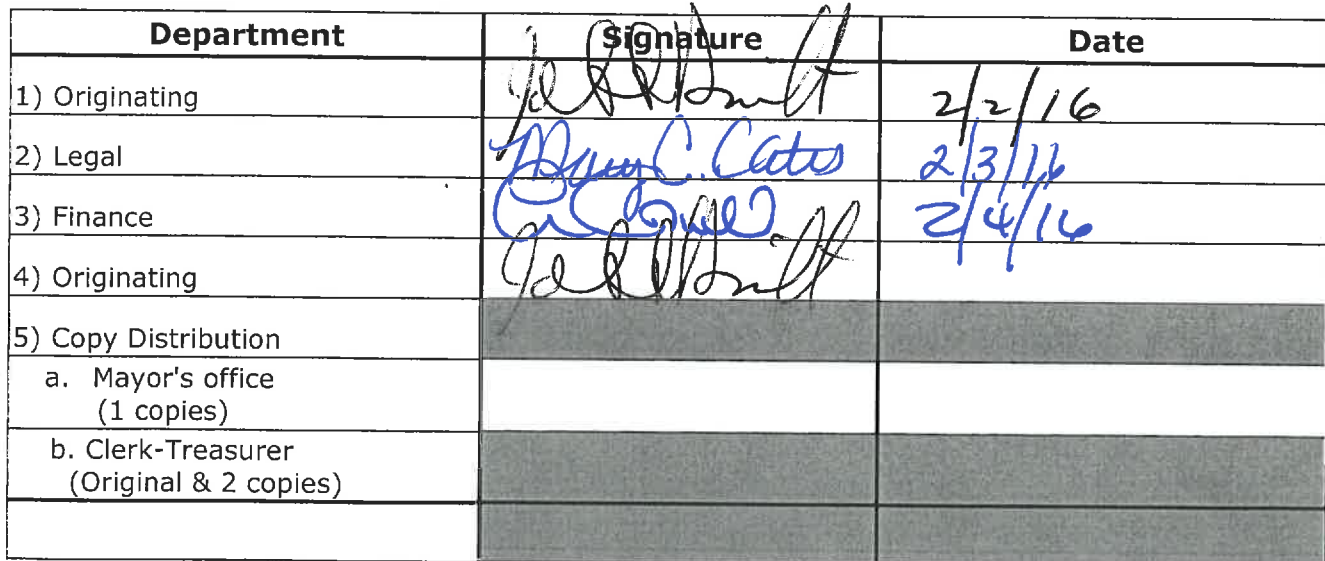 Department Signature Date
1) Originating 2/2/16
2) Legal Mary C. Cates 2/3/16
3) Finance 2/4/16
4) Originating
5) Copy Distribution
a. Mayor's office
(1 copies)
b. Clerk-Treasurer
(Original & 2 copies)